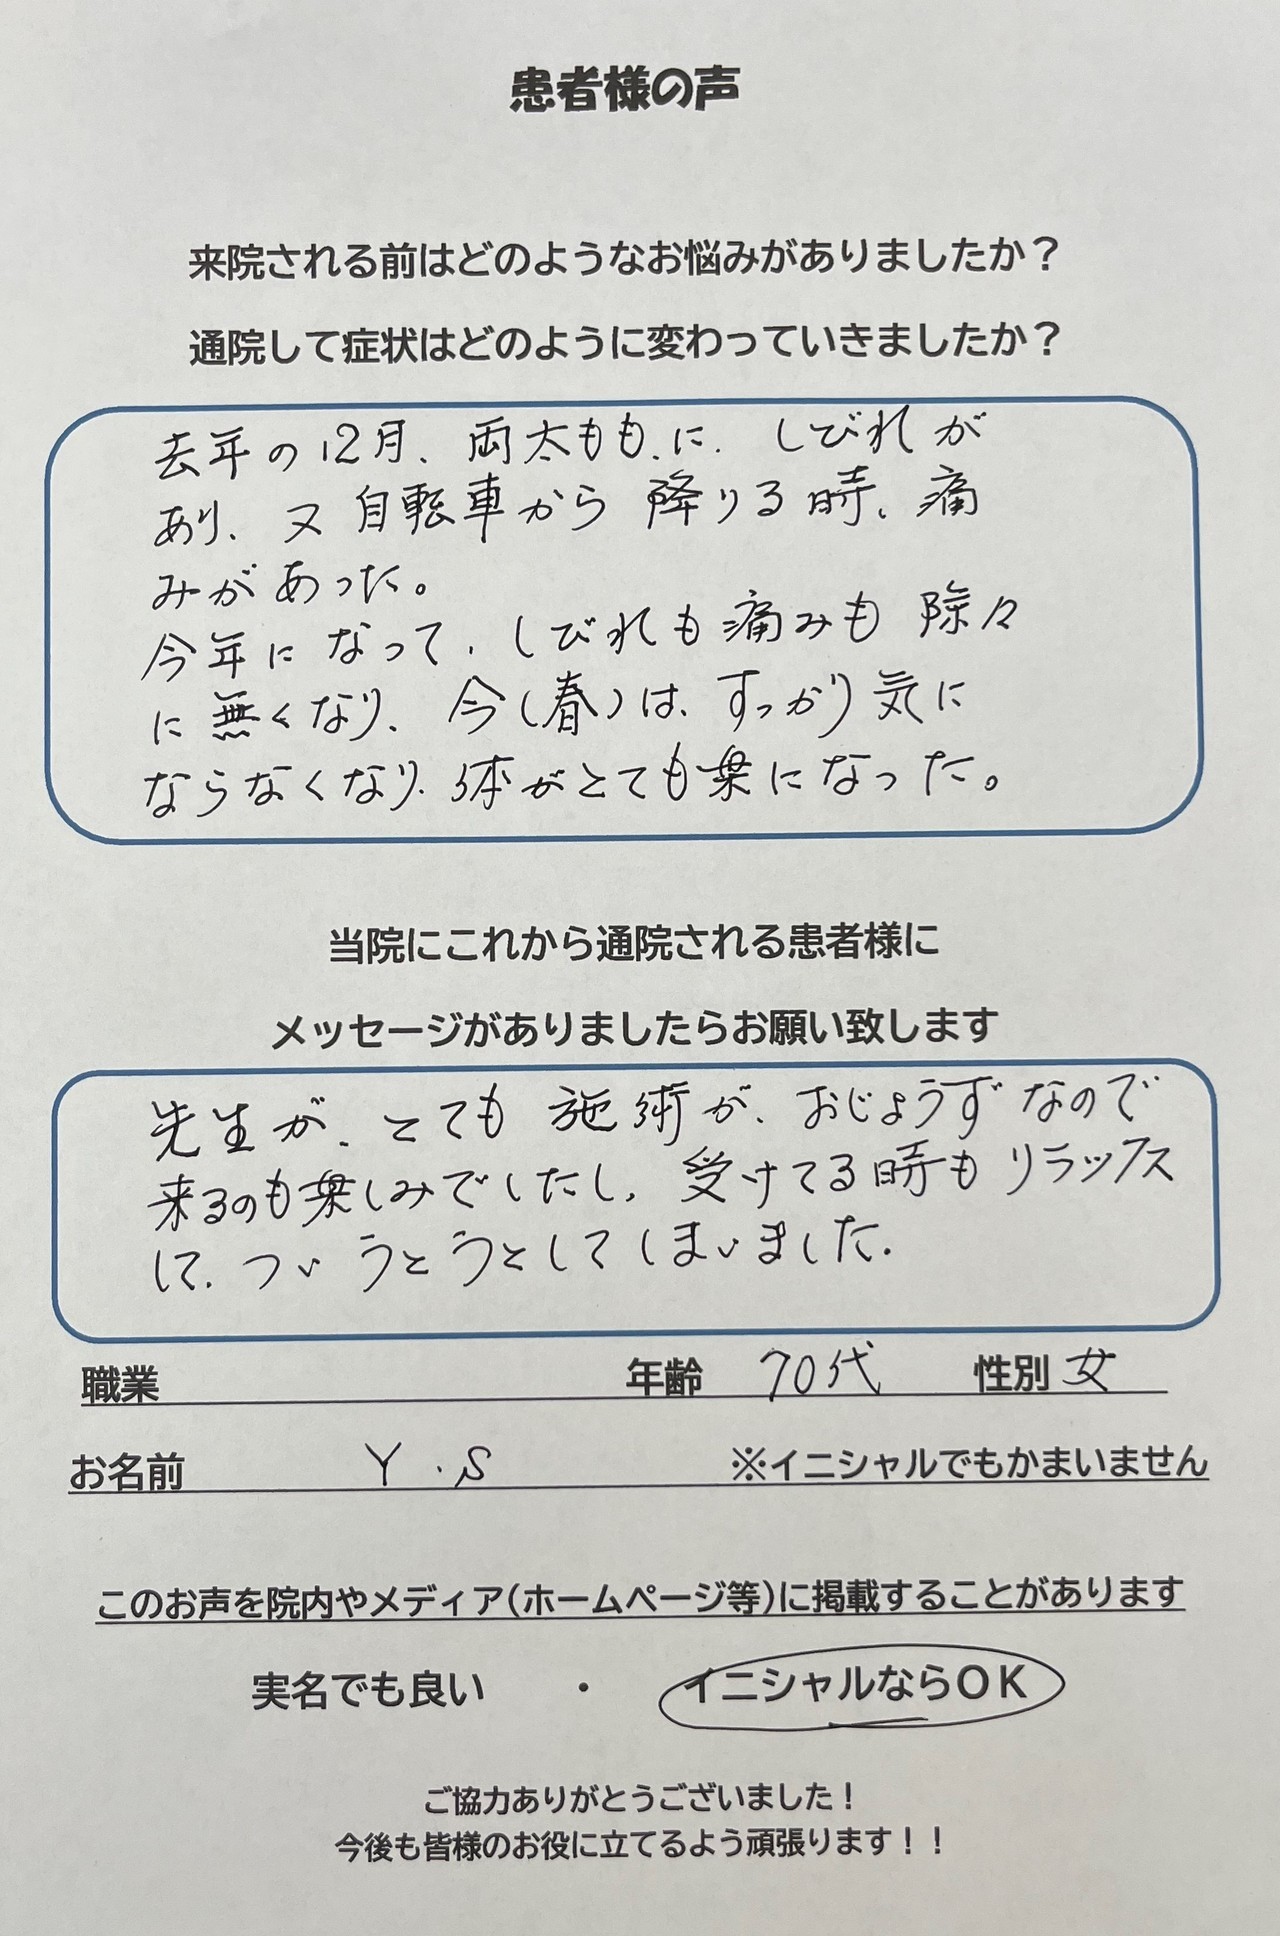 患者様の声
来院される前はどのようなお悩みがありましたか？
通院して症状はどのように変わっていきましたか？
去年の12月、両太もも、に、しびれが
あり、又自転車から降りる時、痛
みがあった。
今年になって、しびれも痛みも除々
に無くなり、今(春)は、すっかり気に
ならなくなり、体がとても楽になった。
当院にこれから通院される患者様に
メッセージがありましたらお願い致します
先生が、とても施術が、おじょうずなので
来るのも楽しみでしたし、受けてる時もリラックス
して、ついうとうとしてしまいました。
職業 年齢 70代 性別 女
お名前 Y.S ※イニシャルでもかまいません
このお声を院内やメディア(ホームページ等)に掲載することがあります
実名でも良い ・ イニシャルならOK
ご協力ありがとうございました！
今後も皆様のお役に立てるよう頑張ります！！